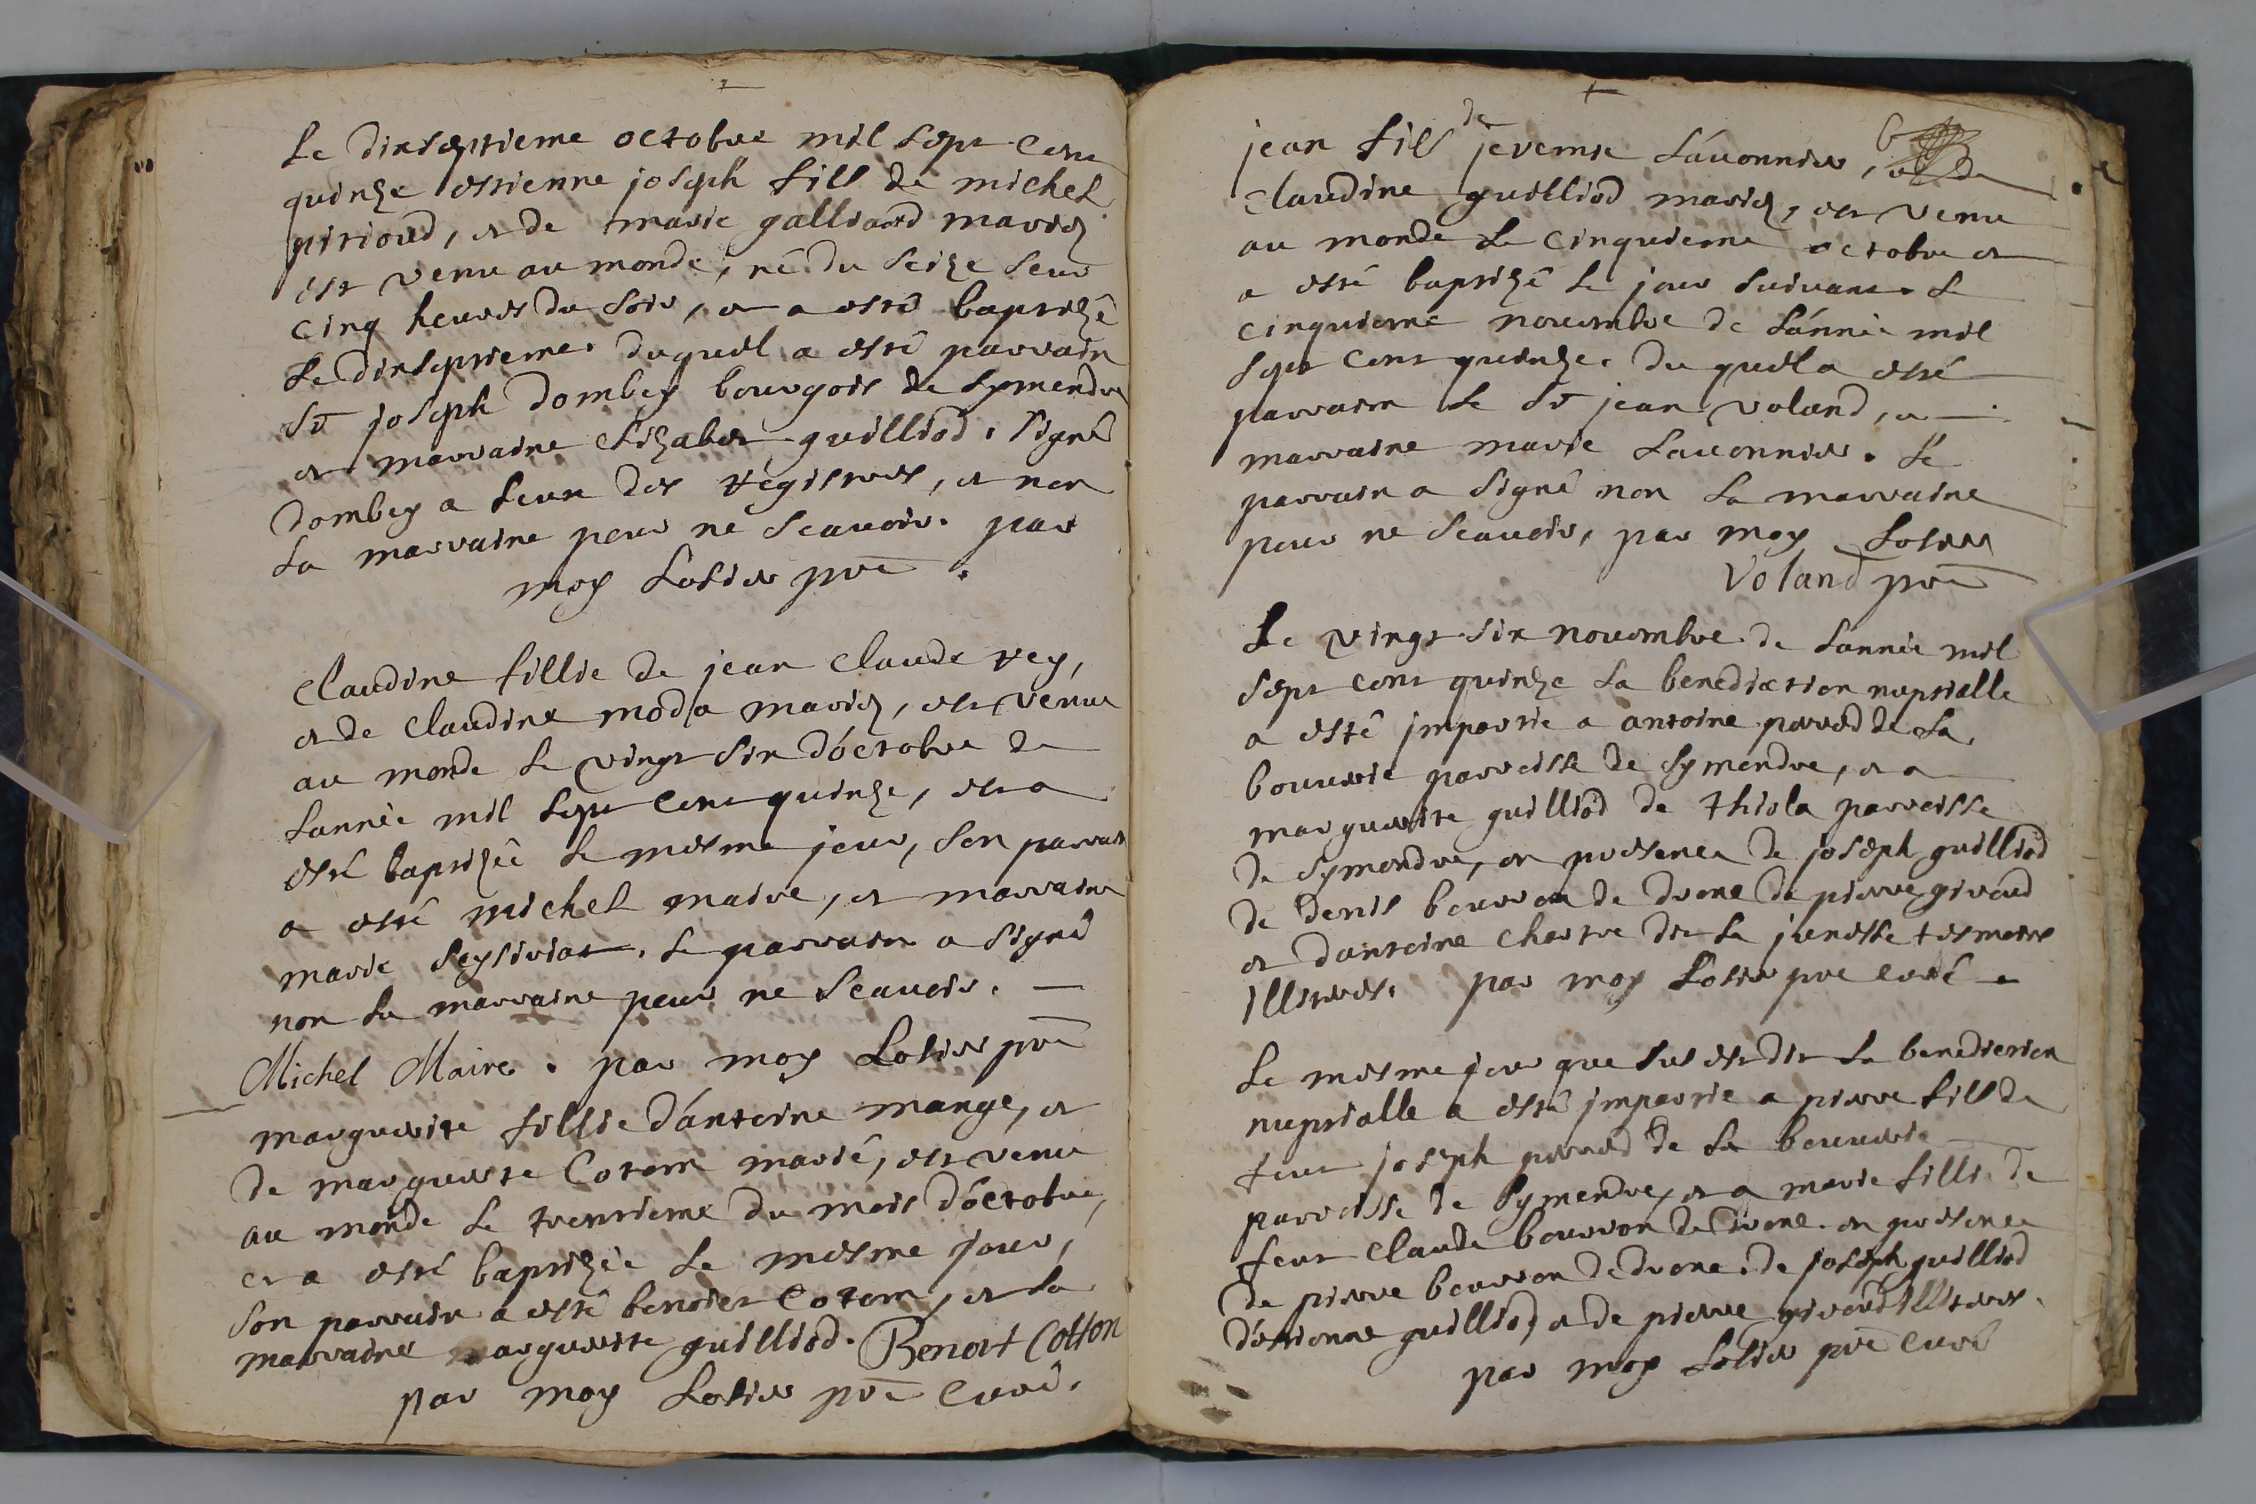 Le dixseptieme octobre mil sept cent
quinze estienne joseph fils de michel
pirioud, et de marie galliard mariez
est venu au monde, né du seize seur
cinq heures du soir, et a esté baptizé
le dixseptieme. duquel a esté parrain
Sr joseph dombey bourgois de symendre
et marraine elizabet guilliod. signé
dombey a l'eun des registres, et non
la marraine pour ne scavoir. par
moy Lotier pre.
Claudine fillie de jean claude rey,
et de claudine moda mariez, est venue
au monde le vingt six d'octobre de
l'année mil sept cent quinze, et a
esté baptizée le mesme jour, son parrain
a esté michel maire, et marraine
marie. le parrain a signé
non la marraine pour ne scavoir.
Michel Maire. par moy Lotier pre
marguerite fillie d'antoine mange, et
de marguerite Cotton marié, est venue
au monde le trentieme du mois d'octobre,
et a esté baptizée le mesme jour,
son parrain a esté benoiet Cotton, et la
marraine marguerite guilliod. Benoit Cotton
par moy Lotier pre curé.
jean fils de jeremie Lauonnier, et de
claudine guilliod mariez, est venu
au monde le cinquieme octobre et
a esté baptizé le jour suivant. le
cinquieme novembre de l'année mil
sept cent quinze. du quel a esté
parrain le Sr jean voland, et
marraine marie Lauonnier. le
parrain a signé non la marraine
pour ne scavoir, par moy Lotier
Voland pre
Le vingt six novembre de l'année mil
sept cent quinze la benediction nuptialle
a esté impartie a antoine perred de la
bouurie parroisse de symendre, et a
marguerite guilliod de thiola parroisse
de symendre, en presence de joseph guilliod
de denis bourron de drone de pierre giroud
et d'antoine chartre dit la junesse tesmoins
illiteres. par moy Lotier pre curé
Le mesme jour que sus est dit la benediction
nuptialle a esté impartie a pierre fils de
feut joseph perred de la bouurie
parroisse de Symendre, et a marie fillie de
feut claude bourron de drone. en presence
de pierre bourron de drone. de joseph guilliod
d'estienne guilliod, et de pierre giroud illiteres.
par moy Lotier pre curé